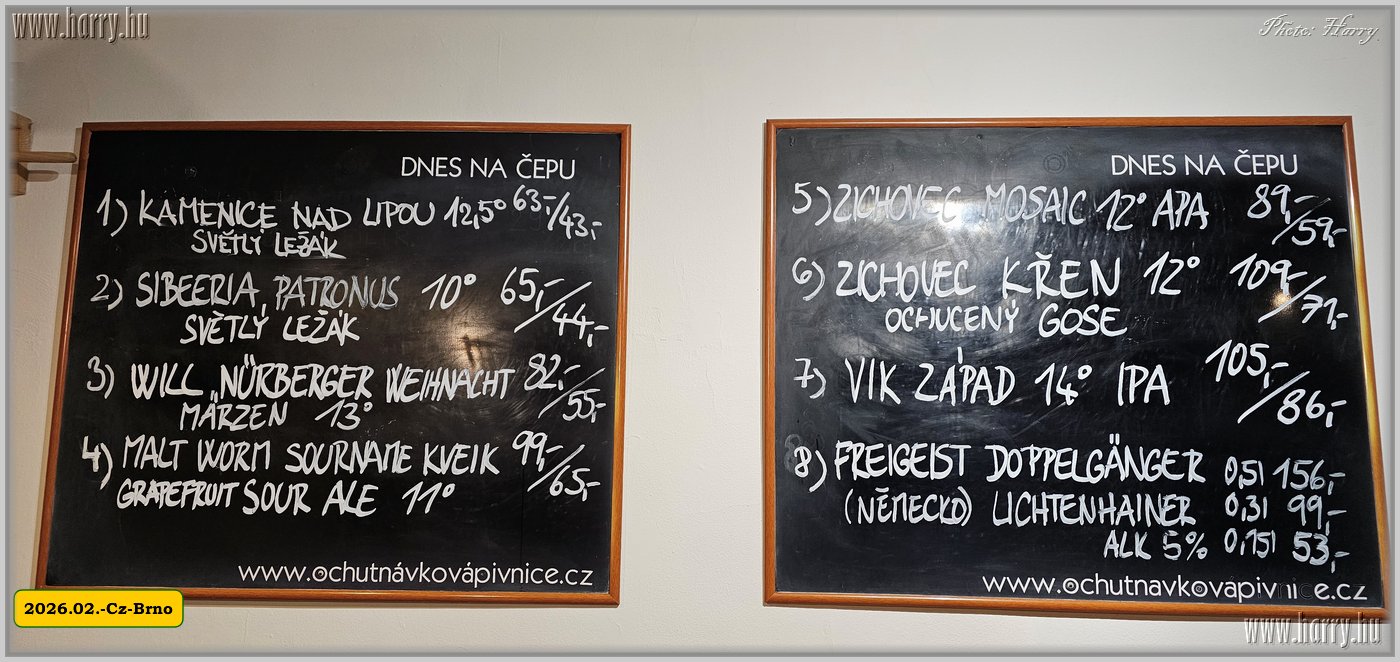 www.harry.hu
Photo: Harry
DNES NA ČEPU
1) KAMENICE NAD LIPOU 12,5° 63,-/43,-
SVĚTLÝ LEŽÁK
2) SIBEERIA PATRONUS 10° 65,-/44,-
SVĚTLÝ LEŽÁK
3) WILL „NÜRBERGER WEIHNACHT 82,-/55,-
MÄRZEN 13°
4) MALT WORM SOURNAME KVEIK 99,-/65,-
GRAPEFRUIT SOUR ALE 11°
www.ochutnávkovápivnice.cz
DNES NA ČEPU
5) ZICHOVEC MOSAIC 12° APA 89,-/59,-
6) ZICHOVEC KŘEN 12° 109,-/71,-
OCHUCENÝ GOSE
7) VIK ZÁPAD 14° IPA 105,-/86,-
8) FREIGEIST DOPPELGÄNGER 0,5l 156,-
(NĚMECKO) LICHTENHAINER 0,3l 99,-
ALK 5% 0,15l 53,-
www.ochutnavkovapivnice.cz
2026.02.-Cz-Brno
www.harry.hu